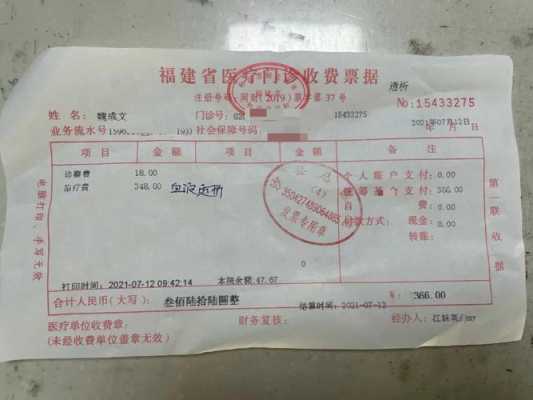 福建省医疗门诊收费票据
透析
注册号:闽财(2019)票字第37号
No:15433275
姓 名: 魏成文 门诊号: 15433275 2021年07月12日
业务流水号 社会保障号码
项 目 金 额 项 目 金 额 备 注
诊察费 18.00 个人账户支付: 0.00
治疗费 348.00 血液透析 统筹基金支付: 366.00
自 费: 0.00
付款方式: 现金: 0.00
转账:
0
350427459064865
(4)
发票专用章
第一联收据
电脑打印、手写无效
打印时间: 2021-07-12 09:42:14 本账余额:47.67
合计人民币(大写): 叁佰陆拾陆圆整 结算时间:2021-07-12 ¥: 366.00
医疗单位收费章: 财务复核: 经办人:
(未经收费单位盖章无效)